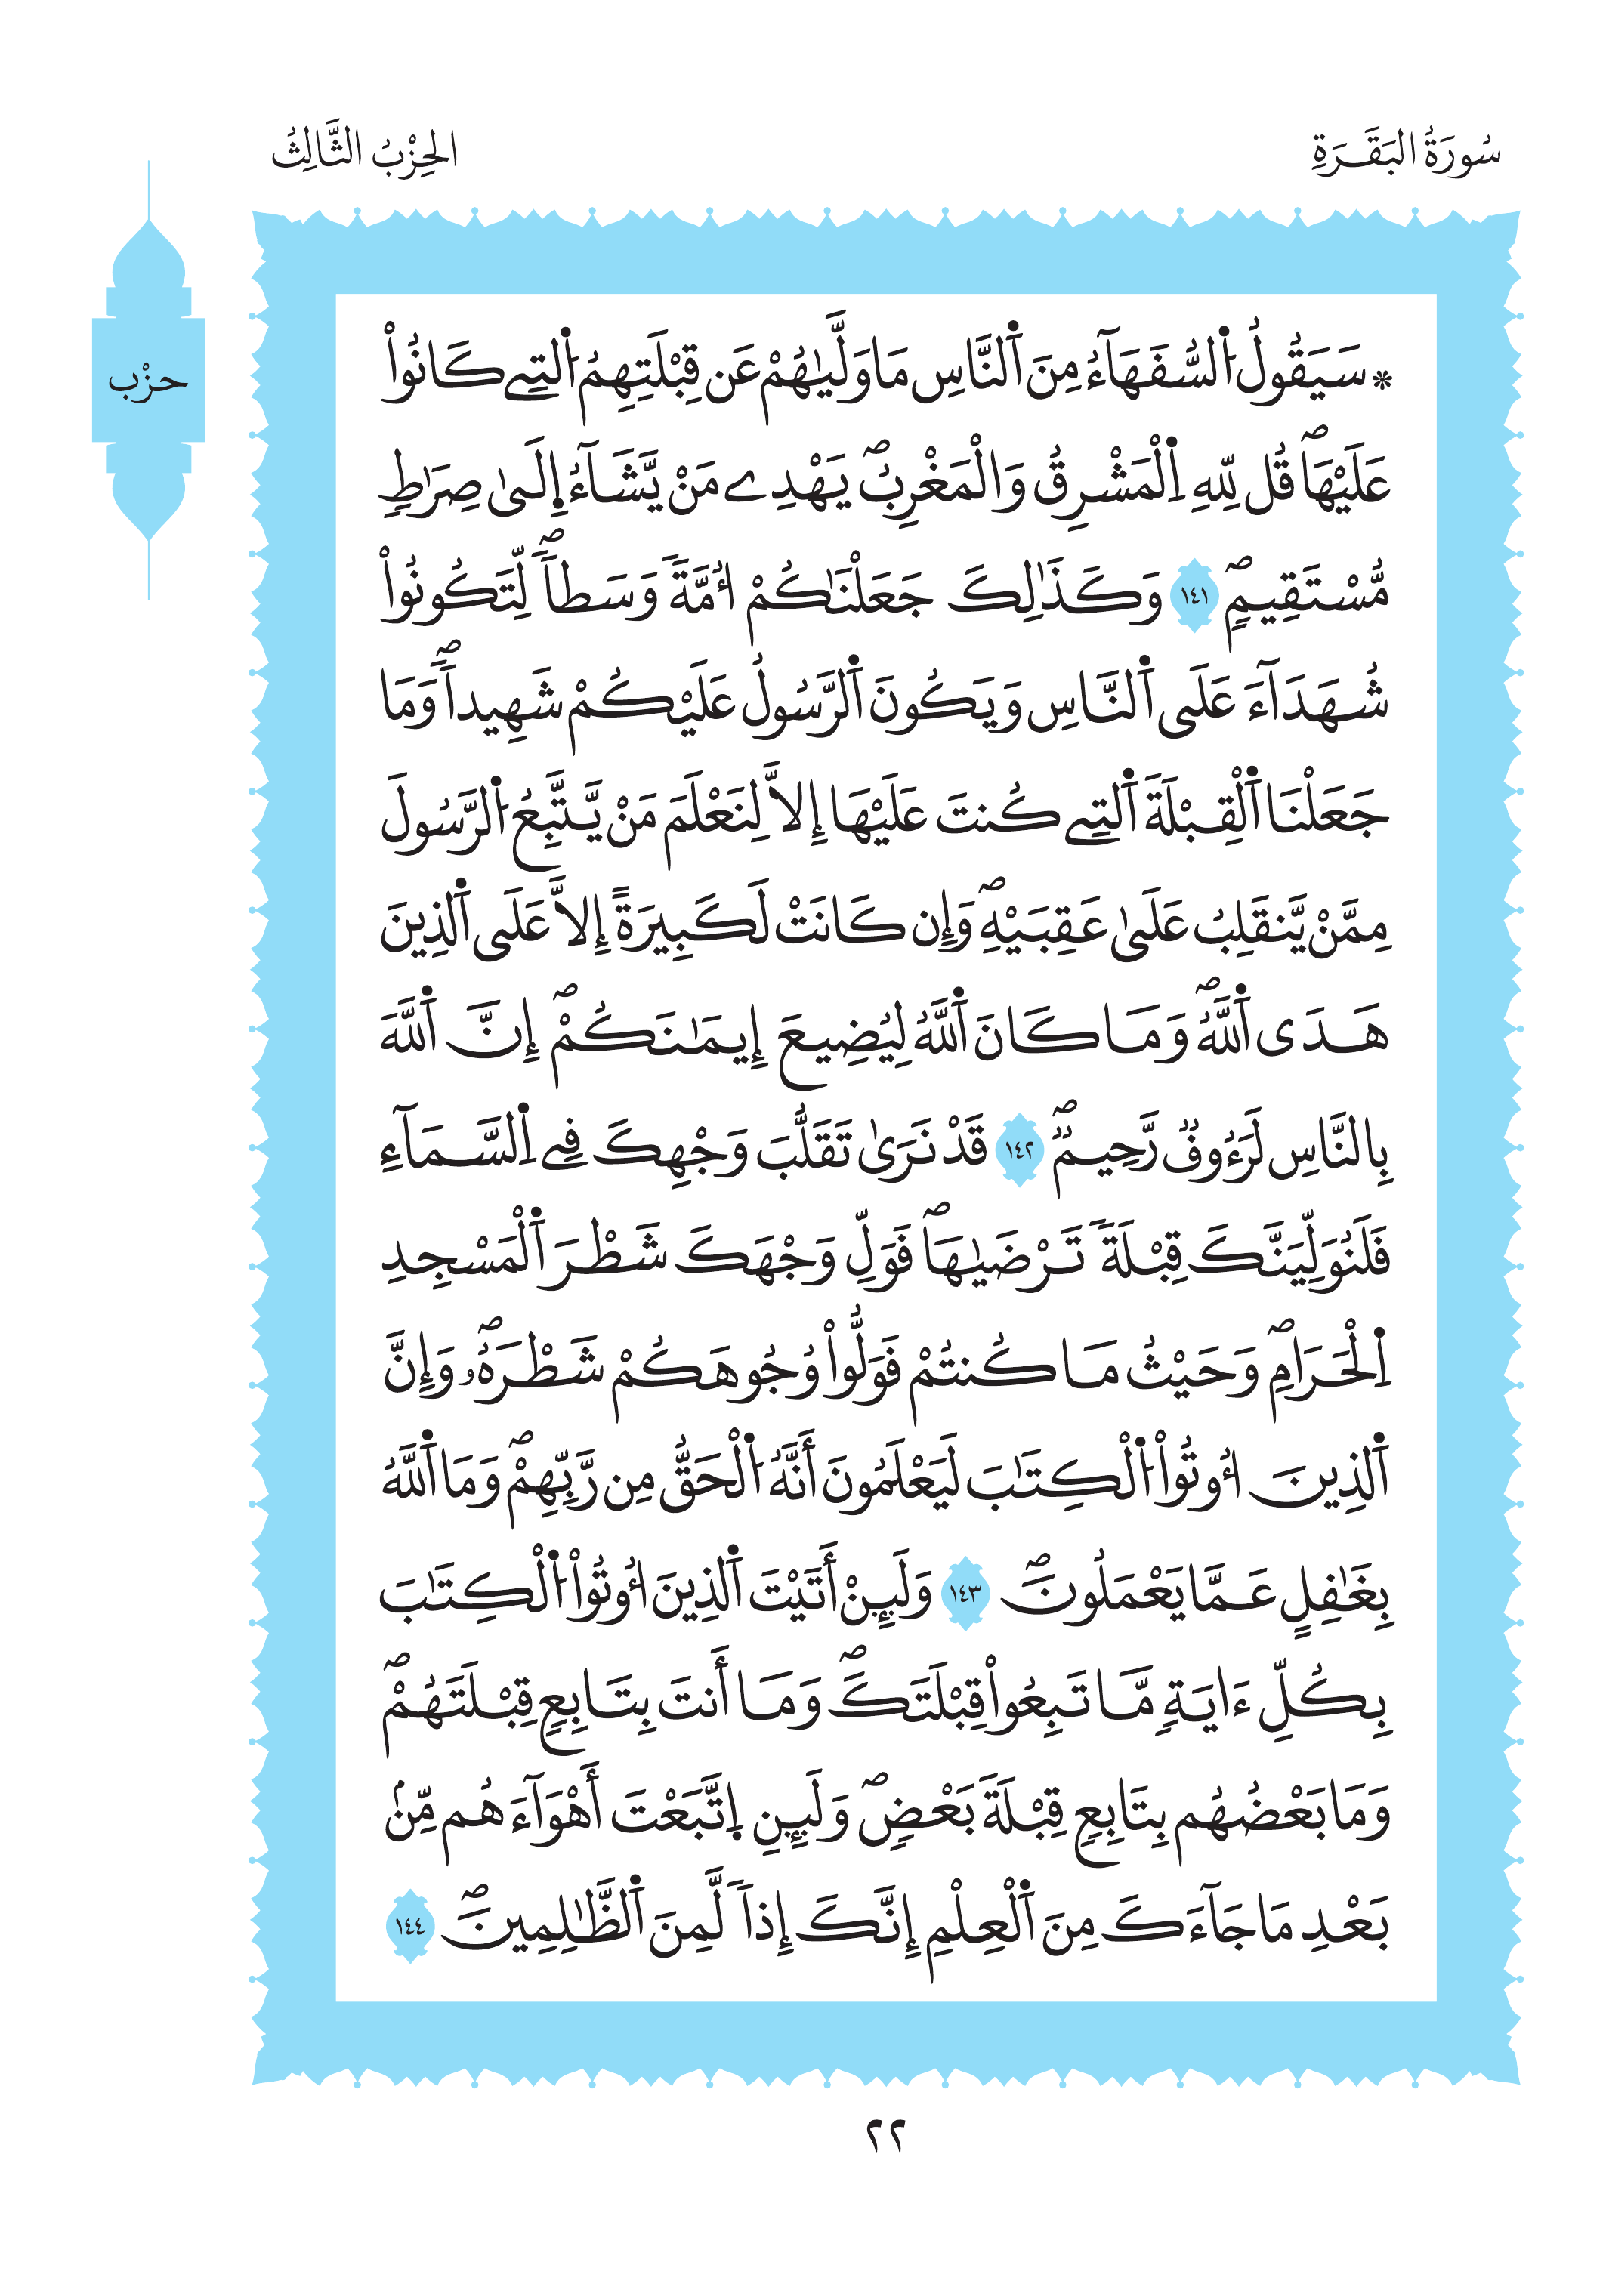 سُورَةُ البَقَرَةِ
الحِزْبُ الثَّالِثُ
حِزْب
* سَيَقُولُ اُ۬لسُّفَهَآءُ مِنَ اَ۬لنَّاسِ مَا وَلَّيٰهُمْ عَن قِبْلَتِهِمُ اُ۬لتِے كَانُواْ
عَلَيْهَاۖ قُل لِّلهِ اِ۬لْمَشْرِقُ وَالْمَغْرِبُۖ يَهْدِے مَنْ يَّشَآءُ اِ۪لَىٰ صِرَٰطٖ
مُّسْتَقِيمٖۖ ١٤١ وَكَذَٰلِكَ جَعَلْنَٰكُمْ أُمَّةٗ وَسَطاٗۖ لِّتَكُونُواْ
شُهَدَآءَ عَلَى اَ۬لنَّاسِ وَيَكُونَ اَ۬لرَّسُولُ عَلَيْكُمْ شَهِيداٗۖ وَمَا
جَعَلْنَا اَ۬لْقِبْلَةَ اَ۬لتِے كُنتَ عَلَيْهَا إِلاَّ لِنَعْلَمَ مَنْ يَّتَّبِعُ اُ۬لرَّسُولَ
مِمَّنْ يَّنقَلِبُ عَلَىٰ عَقِبَيْهِۖ وَإِن كَانَتْ لَكَبِيرَةً إِلاَّ عَلَى اَ۬لذِينَ
هَدَى اَ۬للَّهُۖ وَمَا كَانَ اَ۬للَّهُ لِيُضِيعَ إِيمَٰنَكُمْۖ إِنَّ اَ۬للَّهَ
بِالنَّاسِ لَرَءُوفٞ رَّحِيمٞۖ ١٤٢ قَدْ نَرَىٰ تَقَلُّبَ وَجْهِكَ فِے اِ۬لسَّمَآءِ
فَلَنُوَلِّيَنَّكَ قِبْلَةٗ تَرْضَيٰهَاۖ فَوَلِّ وَجْهَكَ شَطْرَ اَ۬لْمَسْجِدِ
اِ۬لْحَرَامِۖ وَحَيْثُ مَا كُنتُمْ فَوَلُّواْ وُجُوهَكُمْ شَطْرَهُۥۖ وَإِنَّ
اَ۬لذِينَ أُوتُواْ اُ۬لْكِتَٰبَ لَيَعْلَمُونَ أَنَّهُ اُ۬لْحَقُّ مِن رَّبِّهِمْۖ وَمَا اَ۬للَّهُ
بِغَٰفِلٍ عَمَّا يَعْمَلُونَۖ ١٤٣ وَلَئِنْ أَتَيْتَ اَ۬لذِينَ أُوتُواْ اُ۬لْكِتَٰبَ
بِكُلِّ ءَايَةٖ مَّا تَبِعُواْ قِبْلَتَكَۖ وَمَا أَنتَ بِتَابِعٖ قِبْلَتَهُمْۖ
وَمَا بَعْضُهُم بِتَابِعٖ قِبْلَةَ بَعْضٖۖ وَلَئِنِ اِ۪تَّبَعْتَ أَهْوَآءَهُم مِّنۢ
بَعْدِ مَا جَآءَكَ مِنَ اَ۬لْعِلْمِ إِنَّكَ إِذاٗ لَّمِنَ اَ۬لظَّٰلِمِينَۖ ١٤٤
٢٢